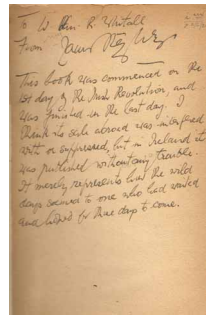 To W. Wm. R. Whitall
From James Stephens
This book was commenced on the
1st day of the Irish Revolution, and
was finished in the last day. I
think its sale abroad was interfered
with or suppressed, but in Ireland it
was published without any trouble.
It merely represents how the wild
days seemed to one who had waited
and hoped for those days to come.